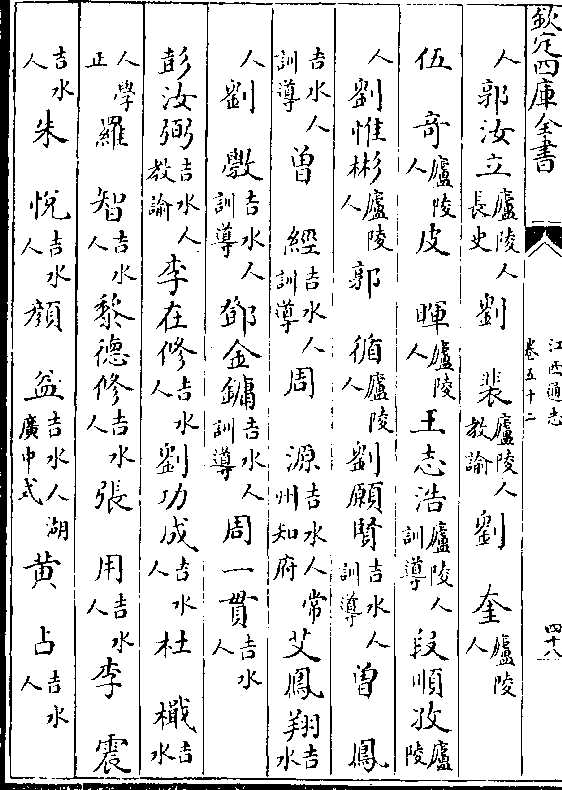 欽定四庫全書
江西通志
卷五十二
四十八
人郭汝立廬陵人長史劉裴廬陵人教諭劉奎廬陵人
伍奇廬陵人皮暉廬陵人王志浩廬陵人訓導段順孜廬陵
人劉惟彬廬陵人郭循廬陵人劉願賢吉水人訓導曽鳳
吉水人訓導曽經吉水人訓導周源吉水人常州知府艾鳳翔吉水
人劉斆吉水人訓導鄧金鏞吉水人訓導周一貫吉水人
彭汝弼吉水人教諭李在修吉水人劉功成吉水人杜檝吉水
人學正羅智吉水人黎德修吉水人張用吉水人李震
吉水人朱悅吉水人顏益吉水人湖廣中式黃占吉水人